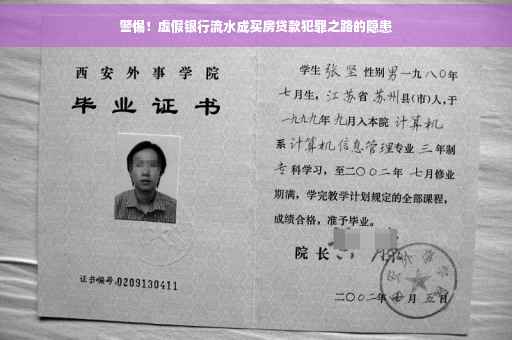 警惕！虚假银行流水成买房贷款犯罪之路的隐患
西安外事学院
毕业证书
证书编号:0209130411
学生 张坚 性别 男 一九八〇年
七月生，江苏省 苏州 县(市)人,于
一九九九年 九月入本院 计算机
系 计算机信息管理 专业 三 年制
专 科学习，至二〇〇二年 七月修业
期满，学完教学计划规定的全部课程，
成绩合格，准予毕业。
院长
二〇〇二年 月 五日